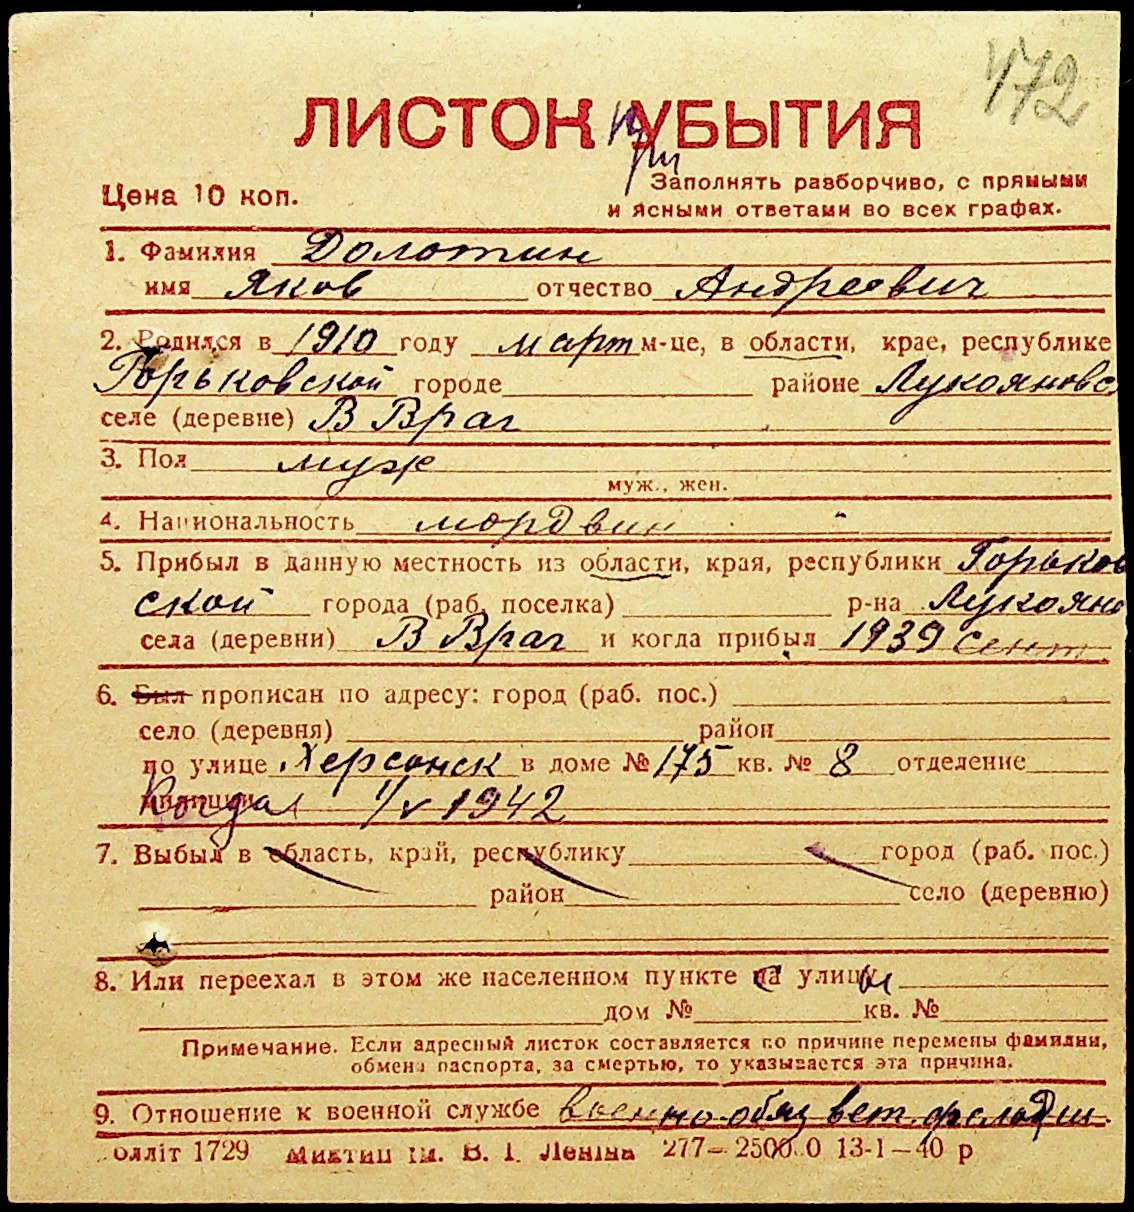 472
ЛИСТОК УБЫТИЯ
При
Цена 10 коп.
Заполнять разборчиво, с прямыми
и ясными ответами во всех графах.
1. Фамилия Долотин
имя Яков отчество Андреевич
2. Родился в 1910 году март м-це, в области, крае, республике
Горьковской городе районе Лукояновс
селе (деревне) В Враг
3. Пол муж
муж., жен.
4. Национальность мордвин
5. Прибыл в данную местность из области, края, республики Горьков
ской города (раб. поселка) р-на Лукояно
села (деревни) В Враг и когда прибыл 1939 сент.
6. Был прописан по адресу: город (раб. пос.)
село (деревня) район
по улице Херсонск в доме № 175 кв. № 8 отделение
милиции Когда 1/V 1942
7. Выбыл в область, край, республику город (раб. пос.)
район село (деревню)
8. Или переехал в этом же населенном пункте с улицы
дом № кв. №
Примечание. Если адресный листок составляется по причине перемены фамилии,
обмена паспорта, за смертью, то указывается эта причина.
9. Отношение к военной службе военнообяз вет. фельдш.
олліт 1729 ім. В. І. Леніна 277— 13-1—40 р